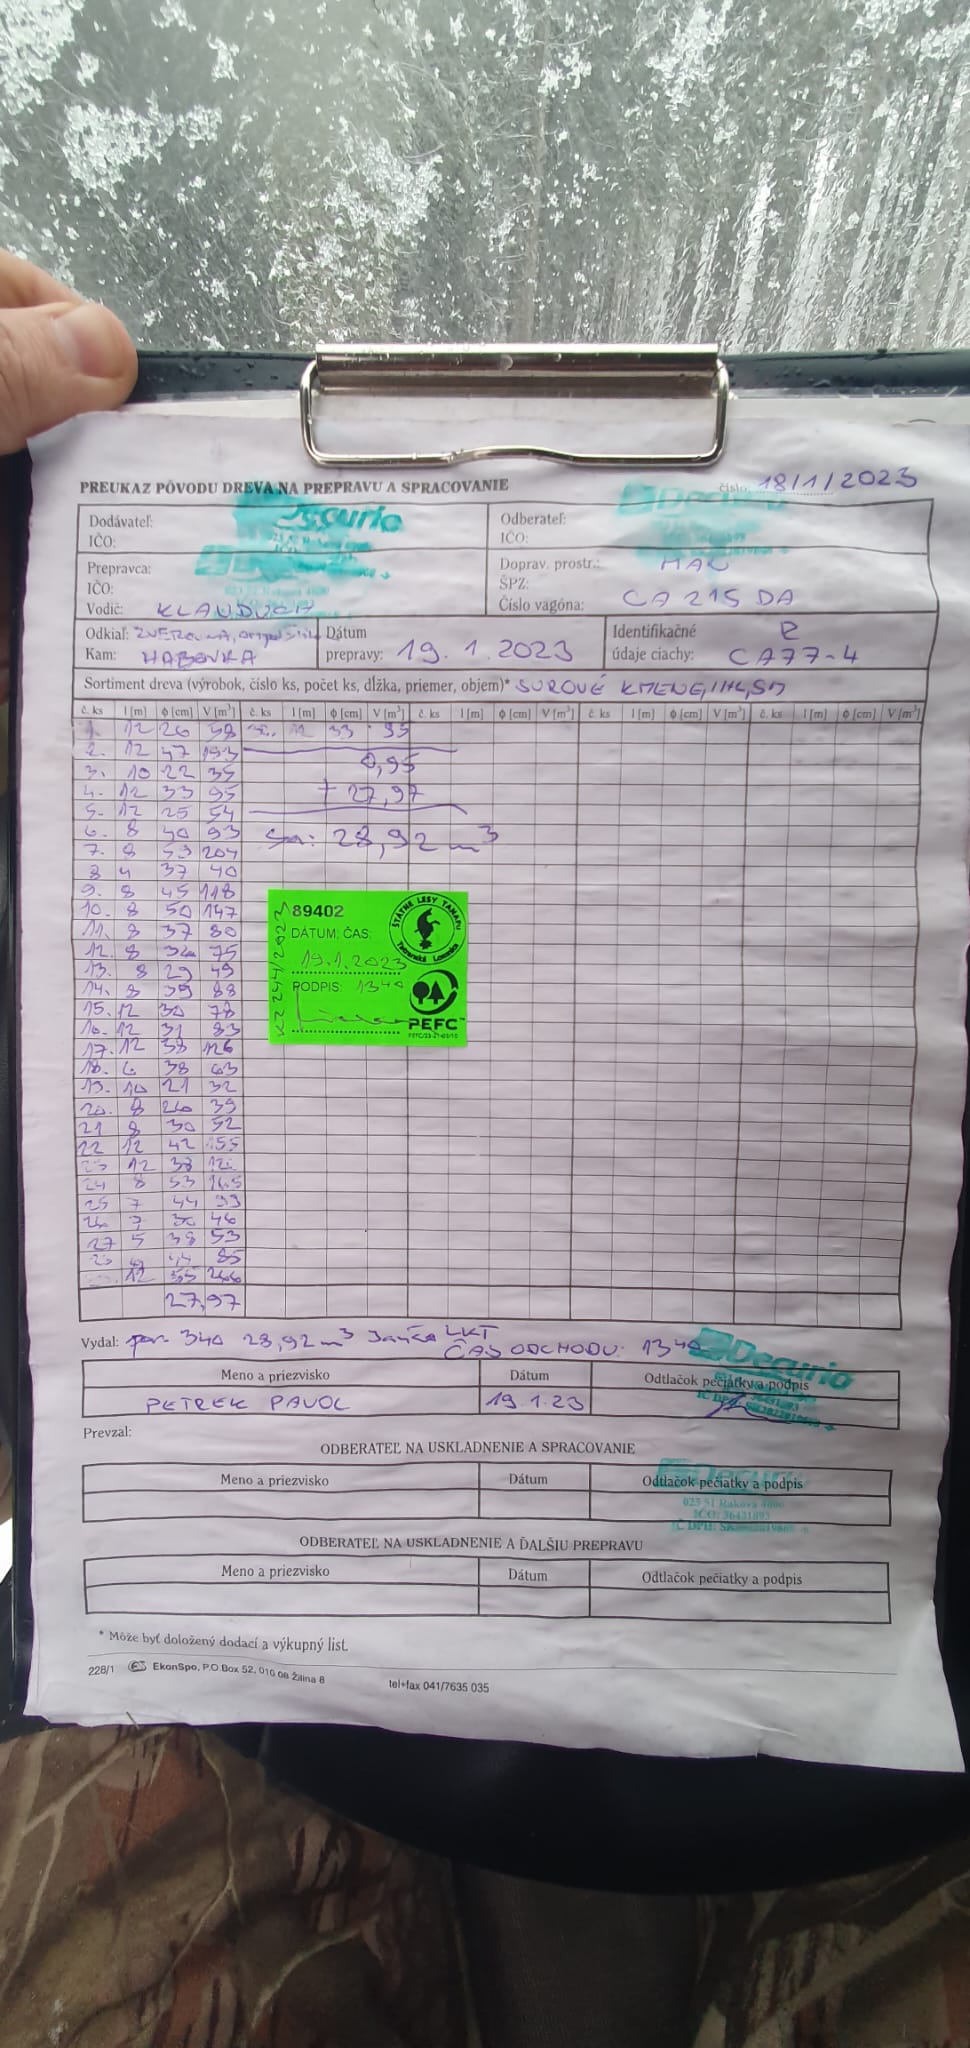 PREUKAZ PÔVODU DREVA NA PREPRAVU A SPRACOVANIE
číslo: 18/1/2023
Dodávateľ:
IČO:
Decurio
Odberateľ:
IČO:
Decurio
Prepravca:
IČO:
Vodič: KLAUDUCH
Doprav. prostr.: MAN
ŠPZ:
Číslo vagóna: CA 215 DA
Odkiaľ: ZVEROVKA,
Kam: HABOVKA
Dátum
prepravy: 19. 1. 2023
Identifikačné
údaje ciachy: CA77-4
Sortiment dreva (výrobok, číslo ks, počet ks, dĺžka, priemer, objem)* SUROVÉ KMENE, IHL, SM
č. ks l [m] ϕ [cm] V [m³] č. ks l [m] ϕ [cm] V [m³] č. ks l [m] ϕ [cm] V [m³] č. ks l [m] ϕ [cm] V [m³] č. ks l [m] ϕ [cm] V [m³]
1. 12 26 58 12 33 95
2. 12 47 193
0,95
3. 10 22 35
4. 12 33 95
+ 27,97
5. 12 25 54
6. 8 40 93
Sa: 28,92 m³
7. 8 59 204
8 4 37 40
9. 8 45 118
10. 8 50 147
11. 8 37 80
12. 8 75
13. 8 29 49
14. 8 39 88
15. 12 30 78
16. 12 31 83
17. 12 38 126
18. 6 38 63
19. 10 21 32
20. 8 26 39
21 8 30 52
22 12 42 155
12 38
24 8 53 165
25 7 44 99
26 7 30 46
27 5 39 53
44 85
12 55 266
27,97
89402
ŠTÁTNE LESY TANAPU
Tatranská Lomnica
DÁTUM: ČAS:
19.1.2023
PODPIS: 13⁴⁰
PEFC™
Vydal: por. 340 28,92 m³ LKT
ČAS ODCHODU: 13⁴⁰
Decurio
Meno a priezvisko Dátum Odtlačok pečiatky a podpis
PETREK PAVOL 19.1.23
Prevzal:
ODBERATEĽ NA USKLADNENIE A SPRACOVANIE
Meno a priezvisko Dátum Odtlačok pečiatky a podpis
Decurio
023 51 Raková
IČO: 36431893
IČ DPH:
ODBERATEĽ NA USKLADNENIE A ĎALŠIU PREPRAVU
Meno a priezvisko Dátum Odtlačok pečiatky a podpis
* Môže byť doložený dodací a výkupný list.
228/1 EkonSpo, P.O.Box 52, 010 08 Žilina 8 tel+fax 041/7635 035